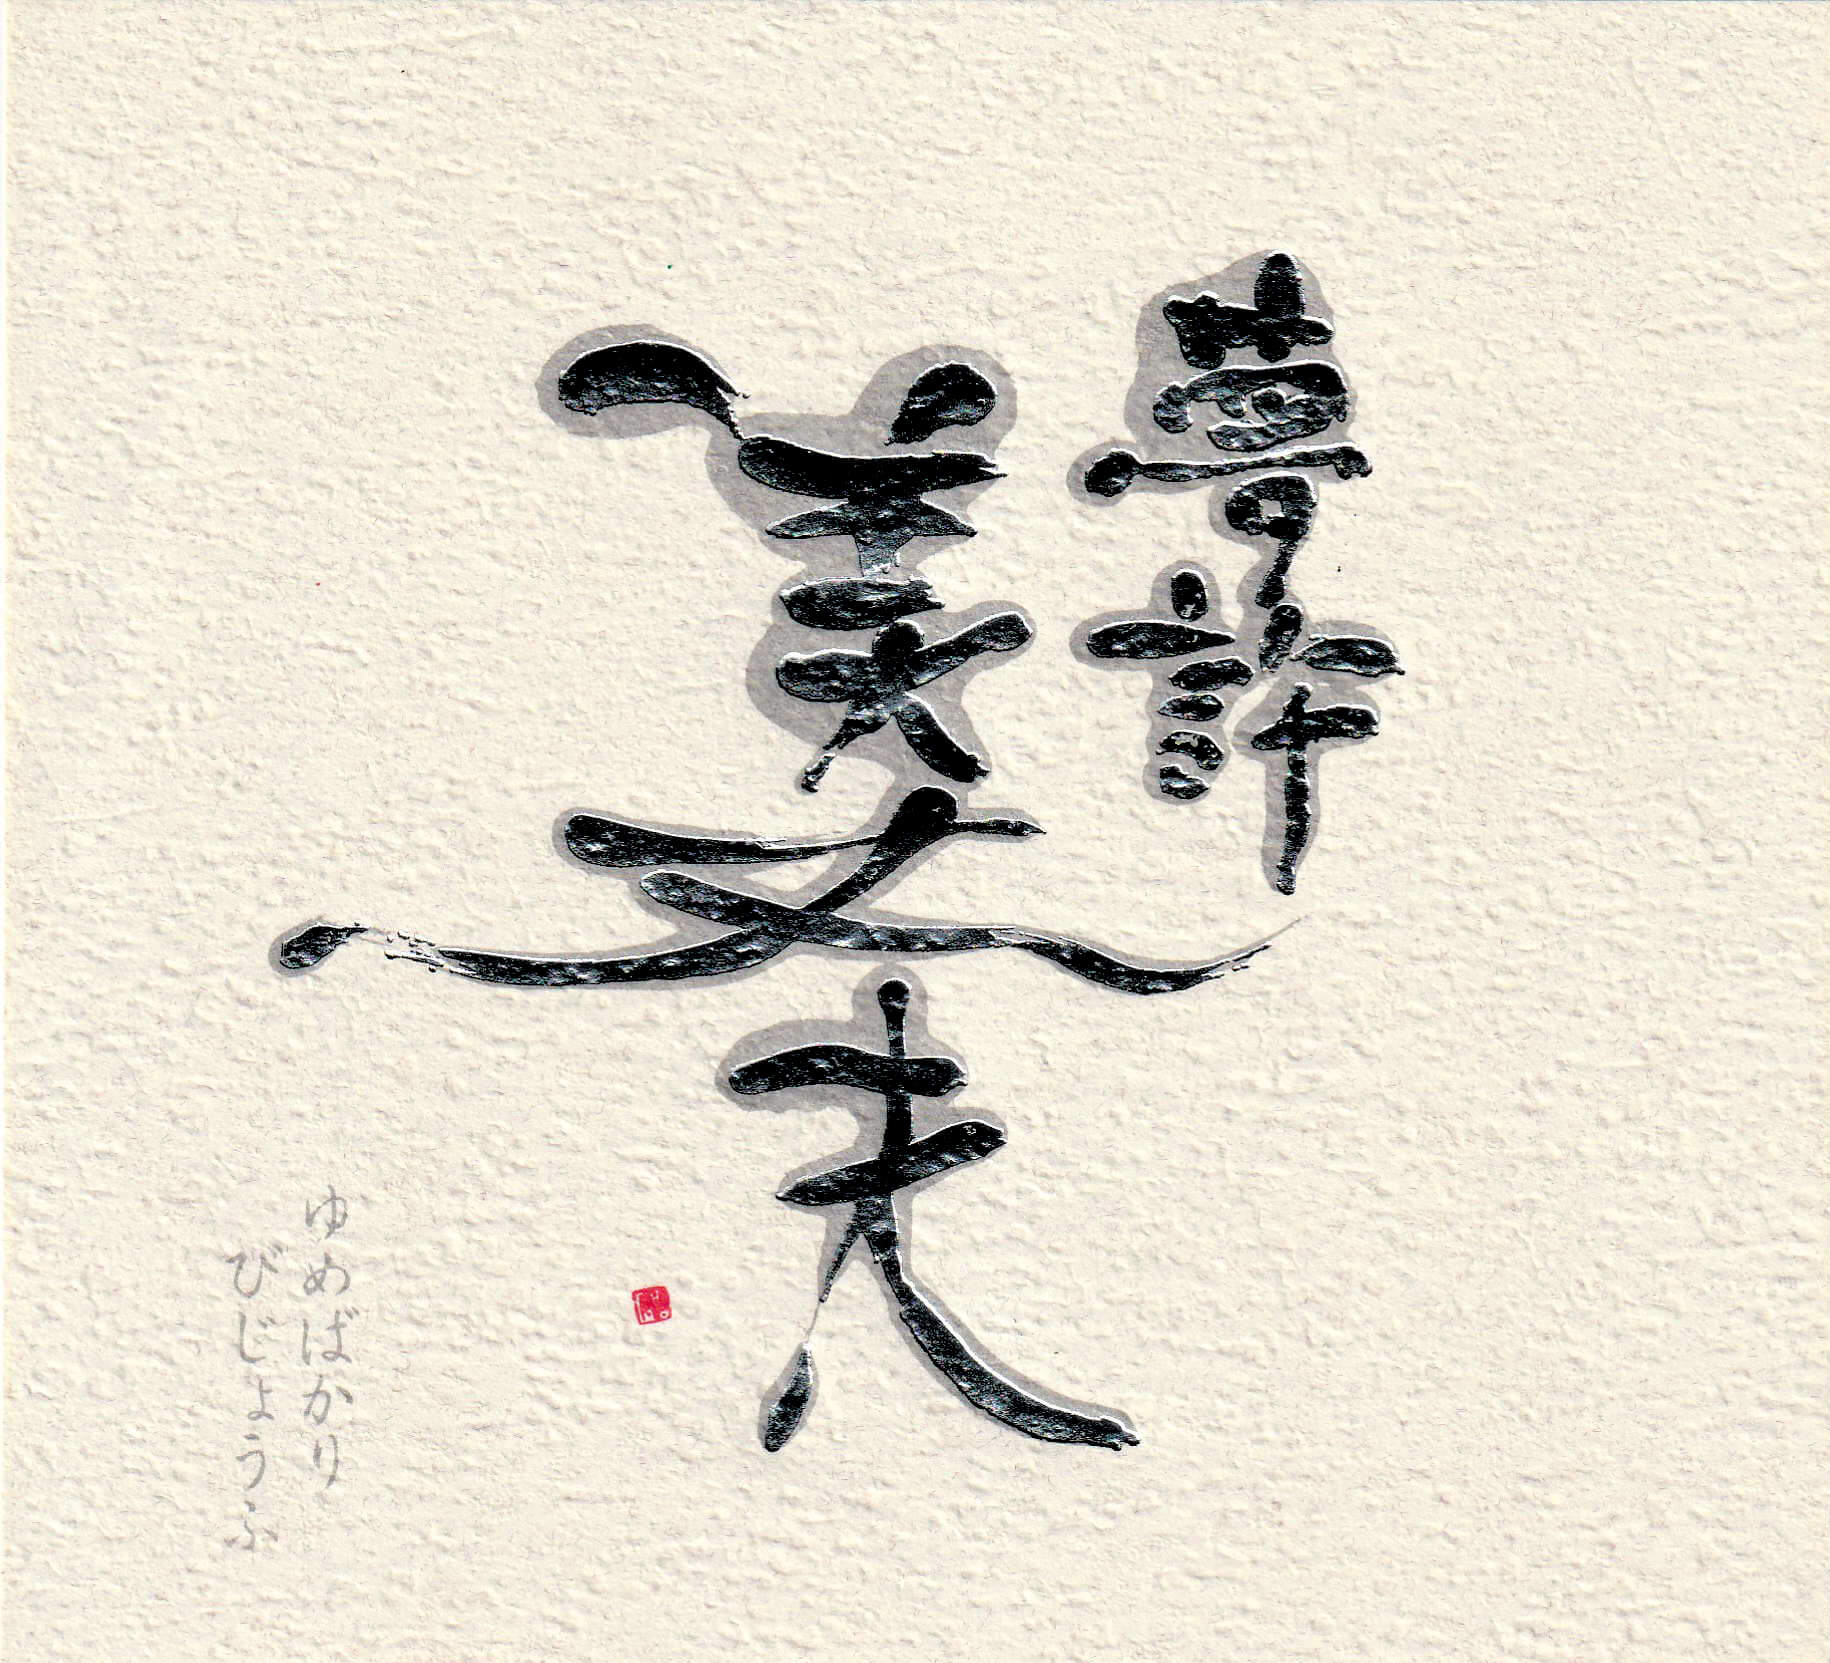 夢許
美女夫
ゆめばかり
びじょうふ